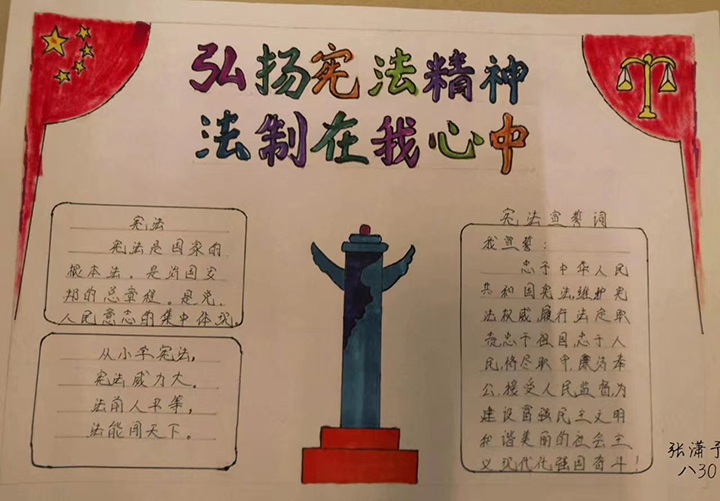 弘扬宪法精神
法制在我心中
宪法
宪法是国家的
根本法，是治国安
邦的总章程。是党、
人民意志的集中体现
从小学宪法，
宪法威力大。
法前人平等，
法能闯天下。
宪法宣誓词
我宣誓：
忠于中华人民
共和国宪法，维护宪
法权威，履行法定职
责忠于祖国忠于人
民，恪尽职守，廉洁奉
公，接受人民监督，为
建设富强民主文明
和谐美丽的社会主
义现代化强国奋斗！
张潇予
八30